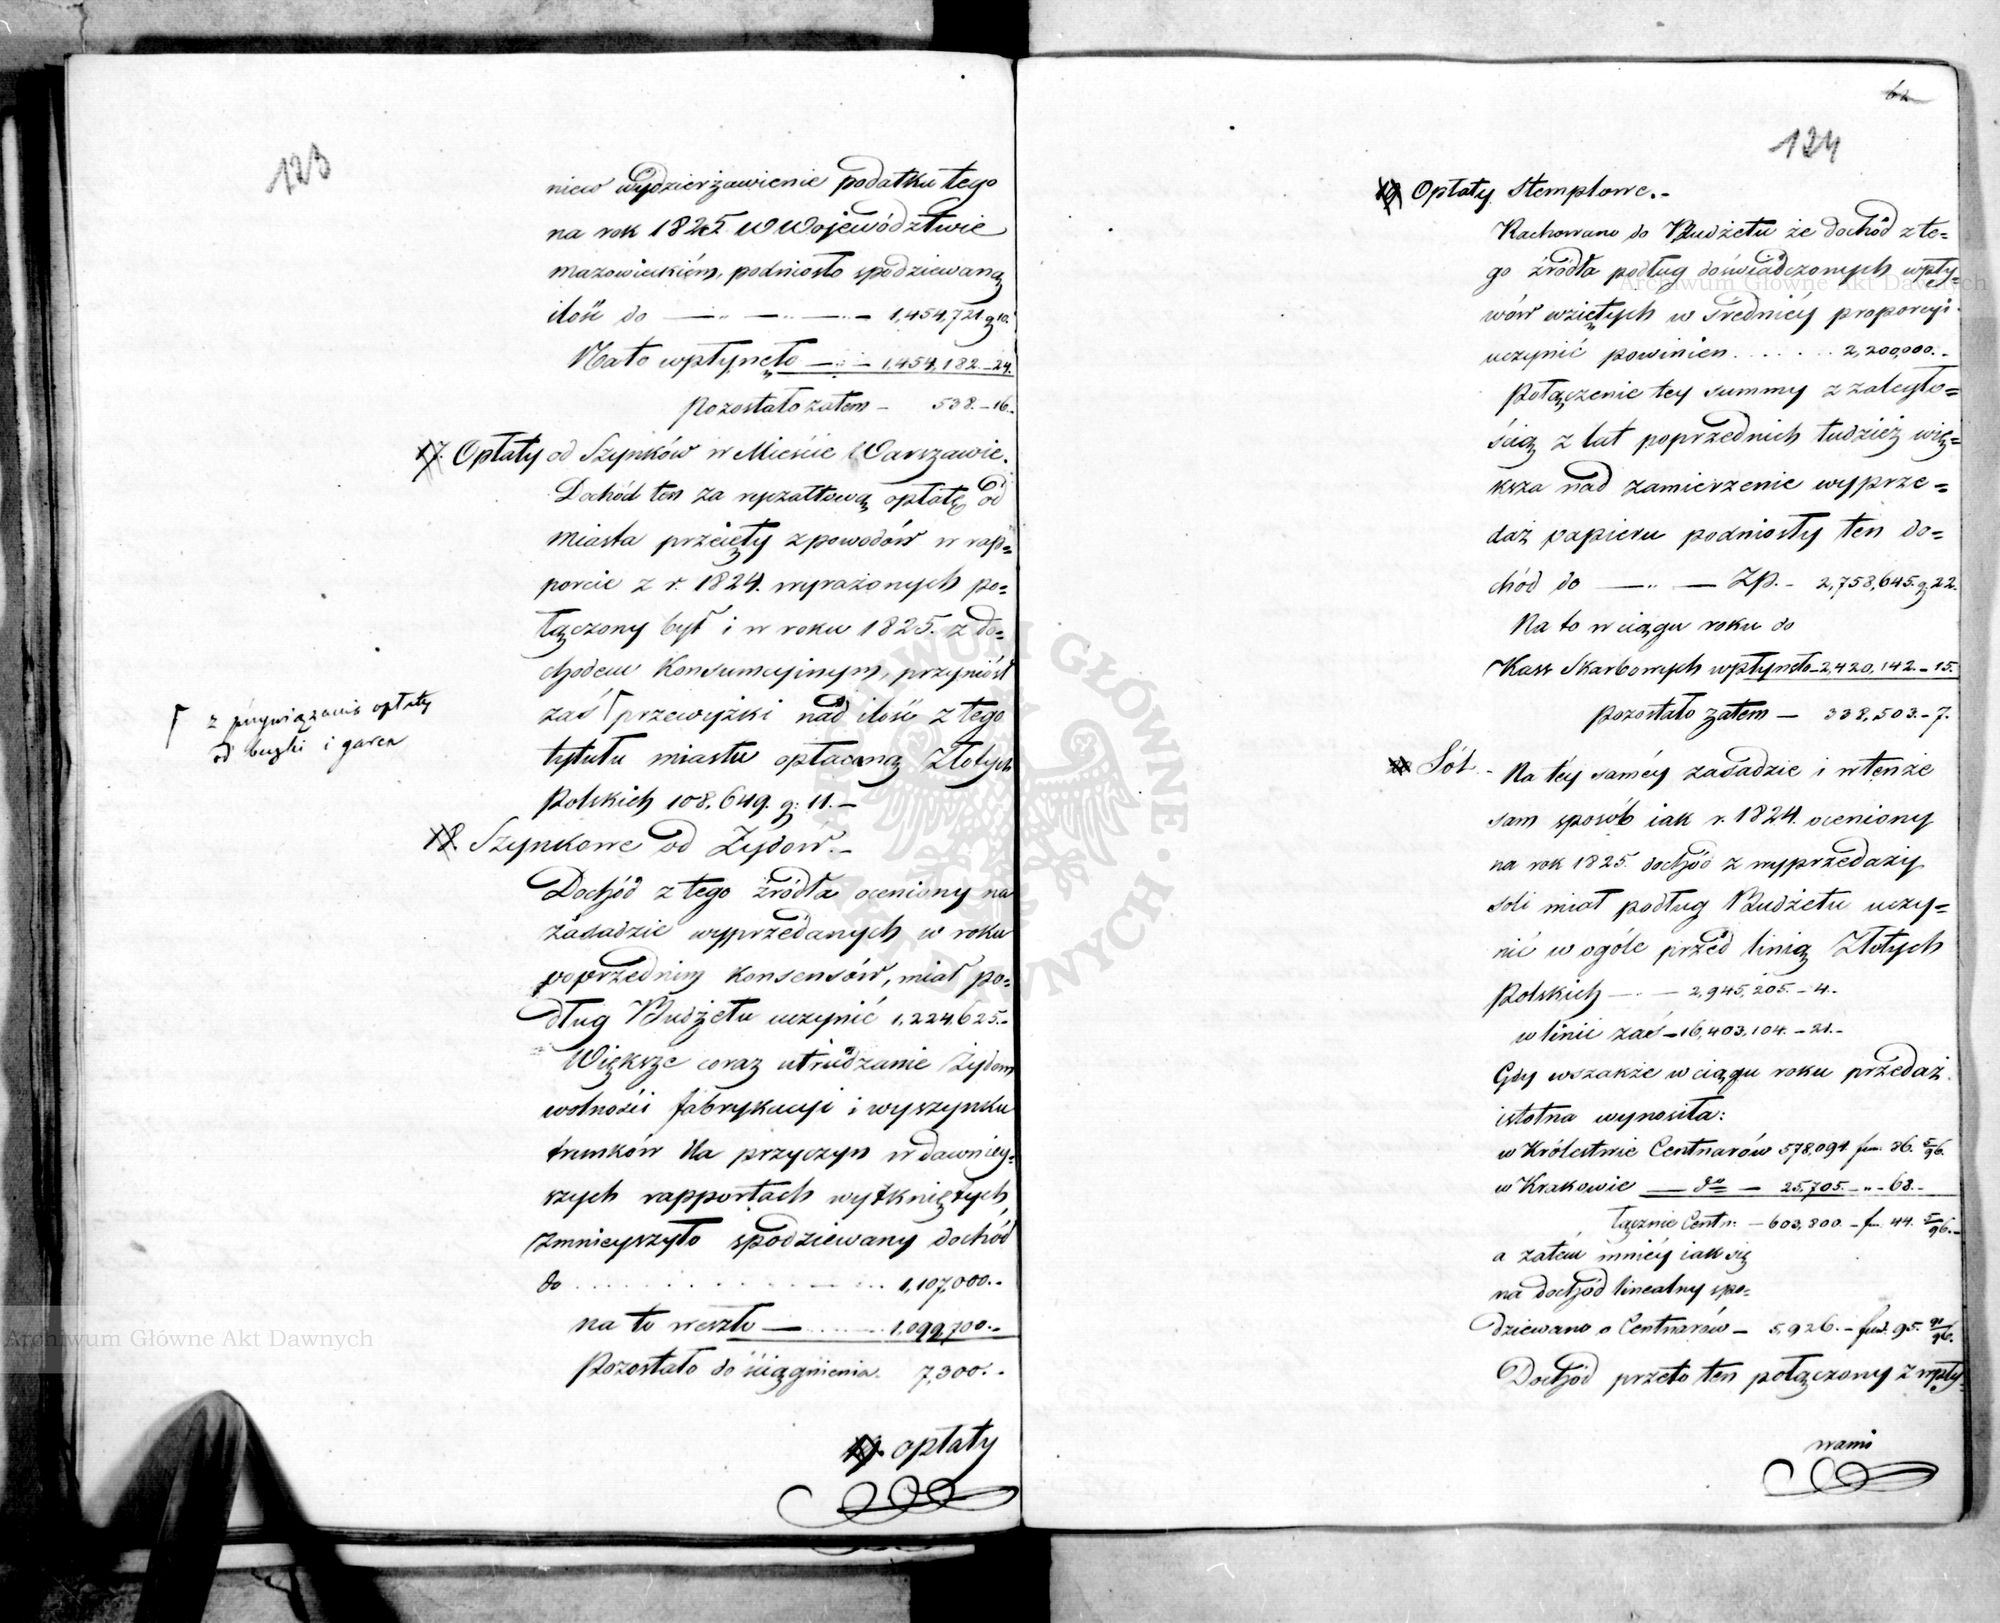 123
niew wydzierżawienie podatku tego
na rok 1825 w Województwie
mazowieckiém, podniosło spodziewaną
ilość do — 1,454,721 g 10.
Na to wpłynęło — 1,454,182. - 24.
pozostało zatem - 538. - 16.
17. Opłaty od Szynków w Mieście Warszawie.
Dochód ten za ryczałtową opłatę od
miasta przejęty z powodów w rap=
porcie z r. 1824. wyrażonych po=
łączony był i w roku 1825. z do=
chodem Konsumcyinym, przyniósł
zaś przewyżki nad ilość z tego
tytułu miastu opłacaną Złotych
Polskich 108,649. g: 11. -
z przywiązania opłaty
od buzki i garca
18. Szynkowe od Żydów. -
Dochód z tego źródła oceniony na
zasadzie wyprzedanych w roku
poprzednim konsensów, miał po=
dług Budżetu uczynić 1,224,625. -
Większe coraz utrudzanie Żydom
wolności fabrykacyi i wyszynku
trunków dla przyczyn w dawniey=
szych rapportach wytkniętych,
zmnieyszyło spodziewany dochód
do . . . . . . 1,107,000. -
na to weszło — 1,099,700. -
Pozostało do ściągnienia. 7,300. -
19. opłaty
62
124
19 Opłaty Stemplowe. -
Rachowano do Budżetu że dochód z te=
go źródła podług doświadczonych wpły=
wów wziętych w średniéy proporcyi
uczynić powinien . . . . . . 2,200,000. -
Połączenie téy summy z zaległo=
ścią z lat poprzednich tudzież więk=
ksza nad zamierzenie wyprze=
daż papieru podniosły ten do=
chód do — Zp. - 2,758,645. g. 22.
Na to w ciągu roku do
Kass Skarbowych wpłynęło - 2,420,142. - 15.
pozostało zatem — 338,503. - 7.
Sól - Na téy saméy zasadzie i w tenże
sam sposób iak r. 1824. oceniony
na rok 1825. dochód z wyprzedaży
soli miał podług Budżetu uczy=
nić w ogóle przed linią Złotych
Polskich — 2,945,205. - 4. -
w linii zaś - 16,403,104. - 21. -
Gdy wszakże w ciągu roku przedaż
istotna wynosiła:
w Królestwie Centnarów 578,094 fun. 36. 5/96.
w Krakowie — do — 25,705. - „ - 68. -
łącznie Centn: - 603,800. - f. 44. 5/96. -
a zatém mniéy iak się
na dochód linealny spo=
dziewano o Centnarów - 5,926. - fun. 95. 91/96.
Dochód przeto ten połączony z wpły=
wami
Archiwum Główne Akt Dawnych
Archiwum Główne Akt Dawnych
ARCHIWUM GŁÓWNE AKT DAWNYCH